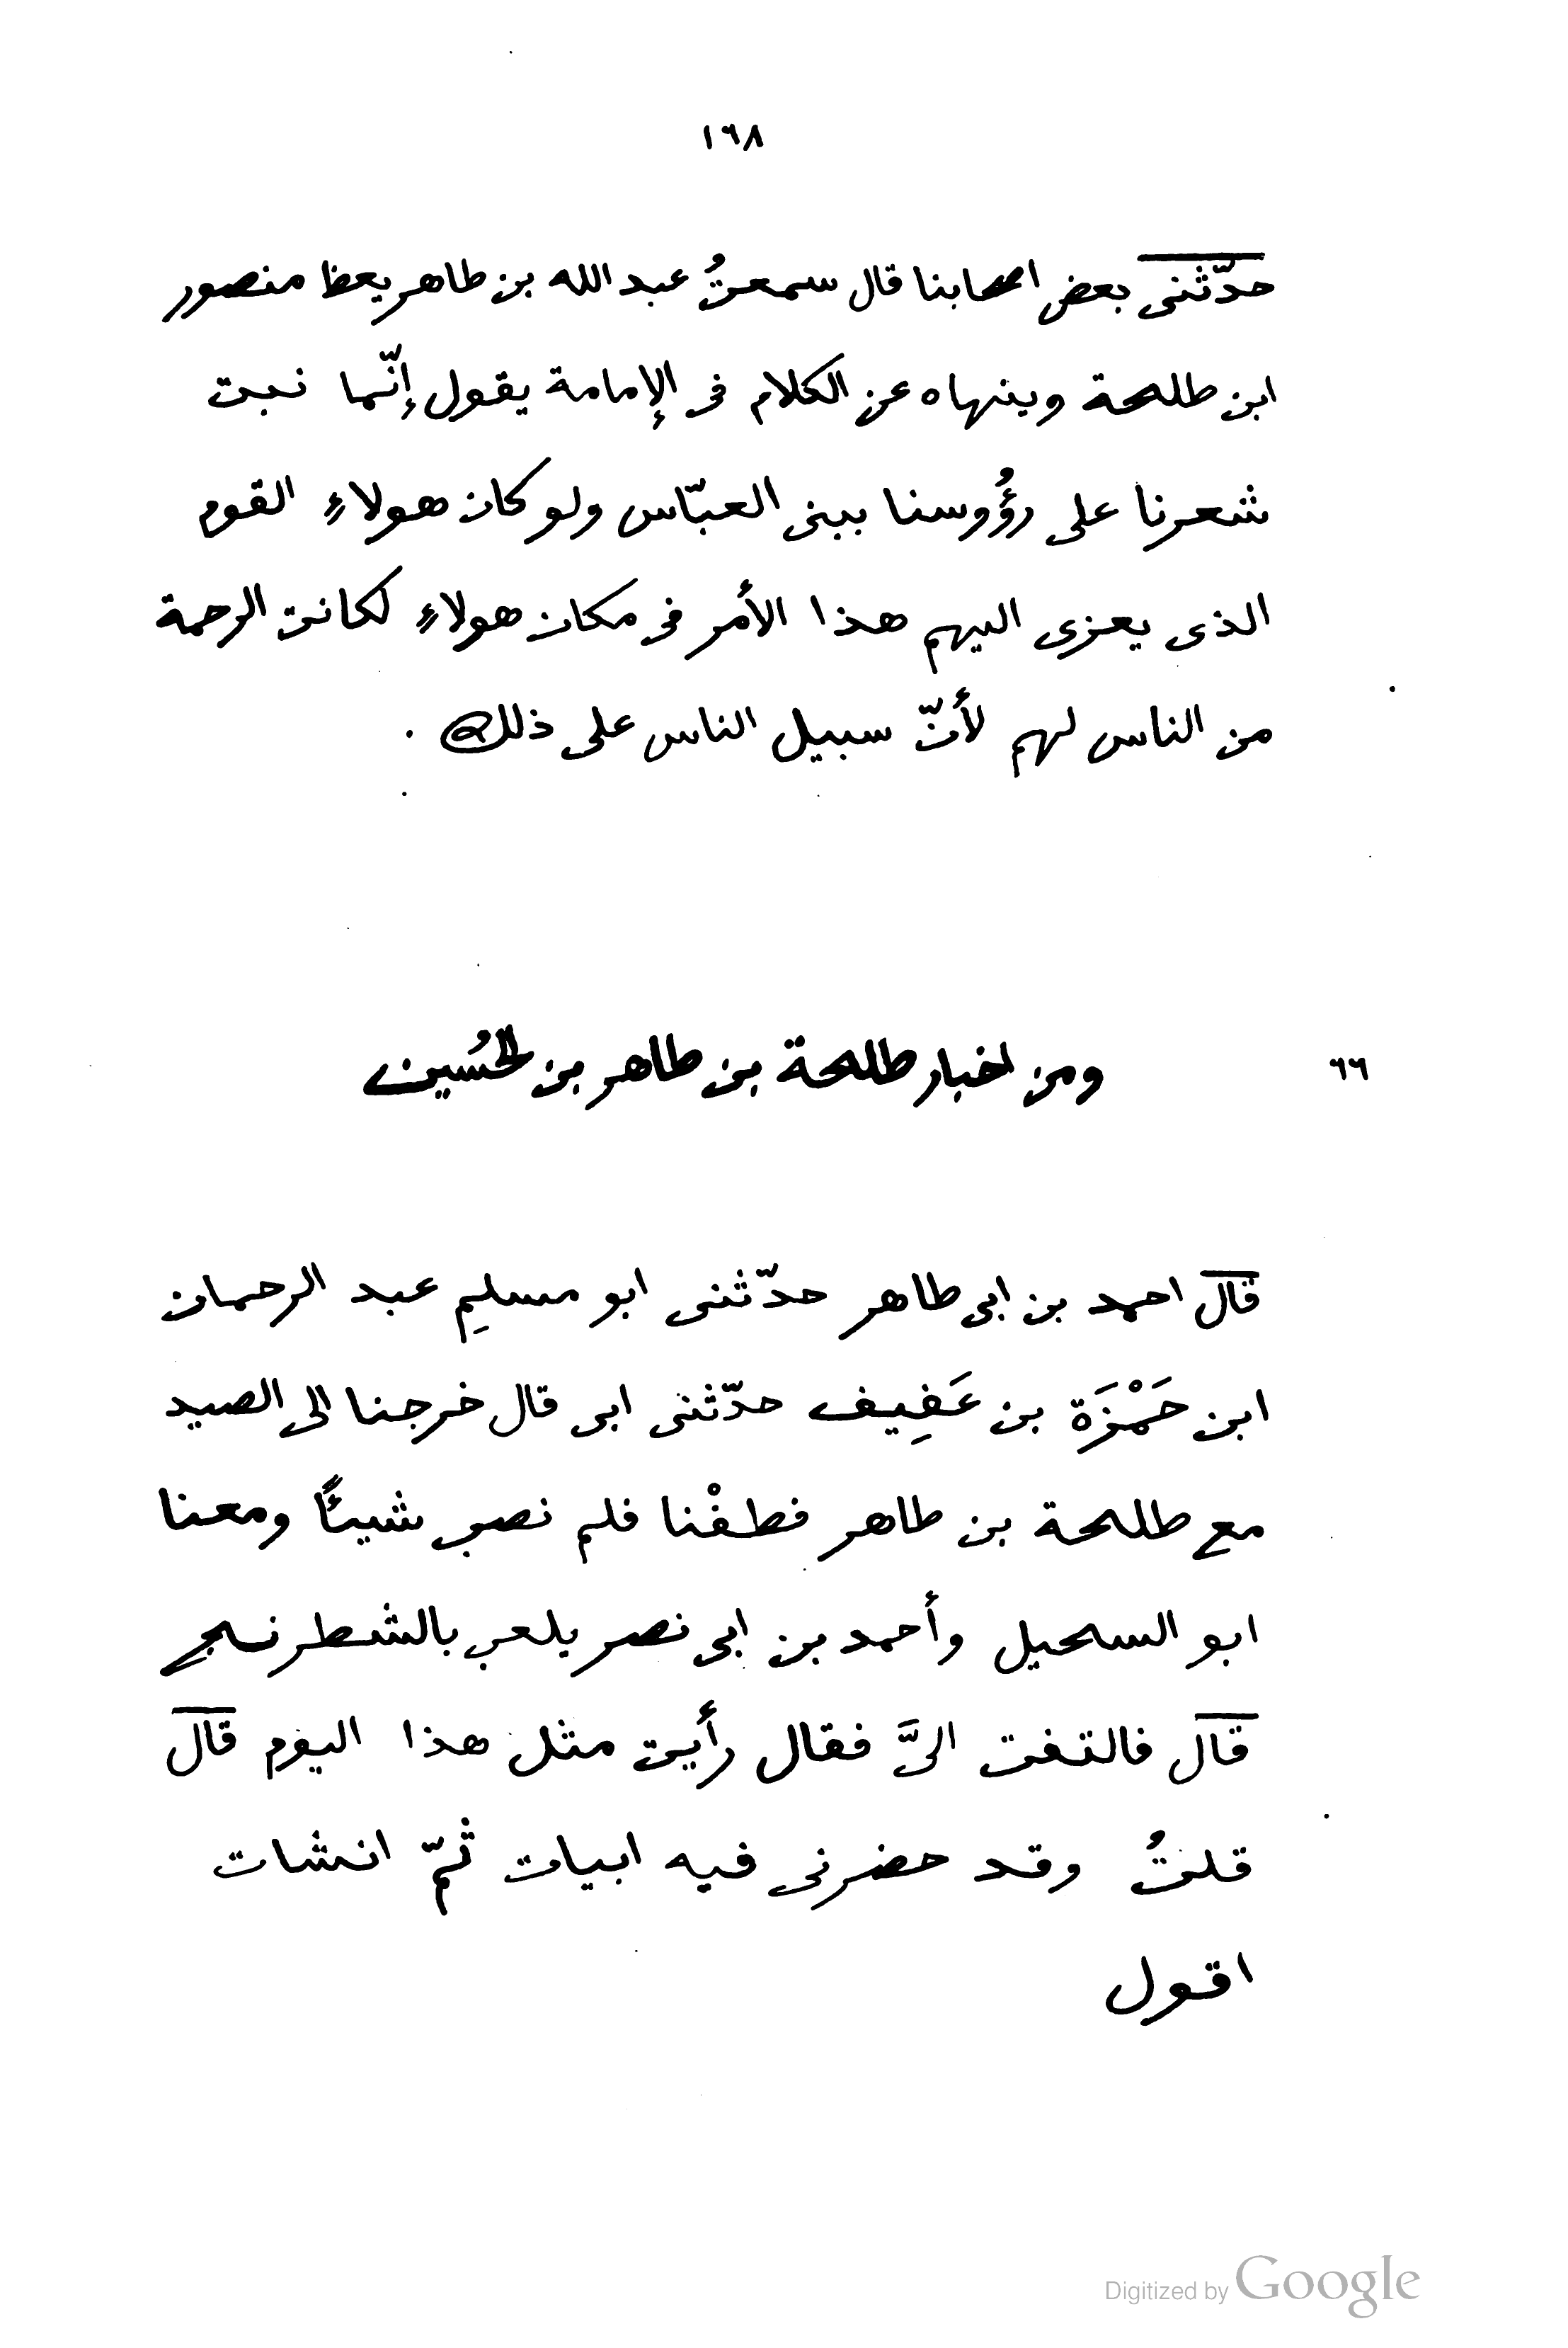 ١٦٨
حدّثنى بعض اصحابنا قال سمعتُ عبد الله بن طاهر يعظ منصور
ابن طلحة وينهاه عن الكلام فى الإمامة يقول إنّما نبت
شعرنا على رؤُوسنا ببنى العبّاس ولو كان هولاءِ القوم
الذى يعزى اليهم هذا الأمر فى مكان هولاءِ لكانت الرحمة
من الناس لهم لأنّ سبيل الناس على ذلك .
٦٦ ومن اخبار طلحة بن طاهر بن الحُسين
قال احمد بن ابى طاهر حدّثنى ابو مسلِم عبد الرحمان
ابن حَمْزَة بن عَفِيف حدّثنى ابى قال خرجنا الى الصيد
مع طلحة بن طاهر فطفْنا فلم نصب شيئًا ومعنا
ابو السحيل وأحمد بن ابى نصر يلعب بالشطرنج
قال فالتفت الىَّ فقال رأيت مثل هذا اليوم قال
قلتُ وقد حضرنى فيه ابيات ثمّ انشات
اقول
Digitized by Google